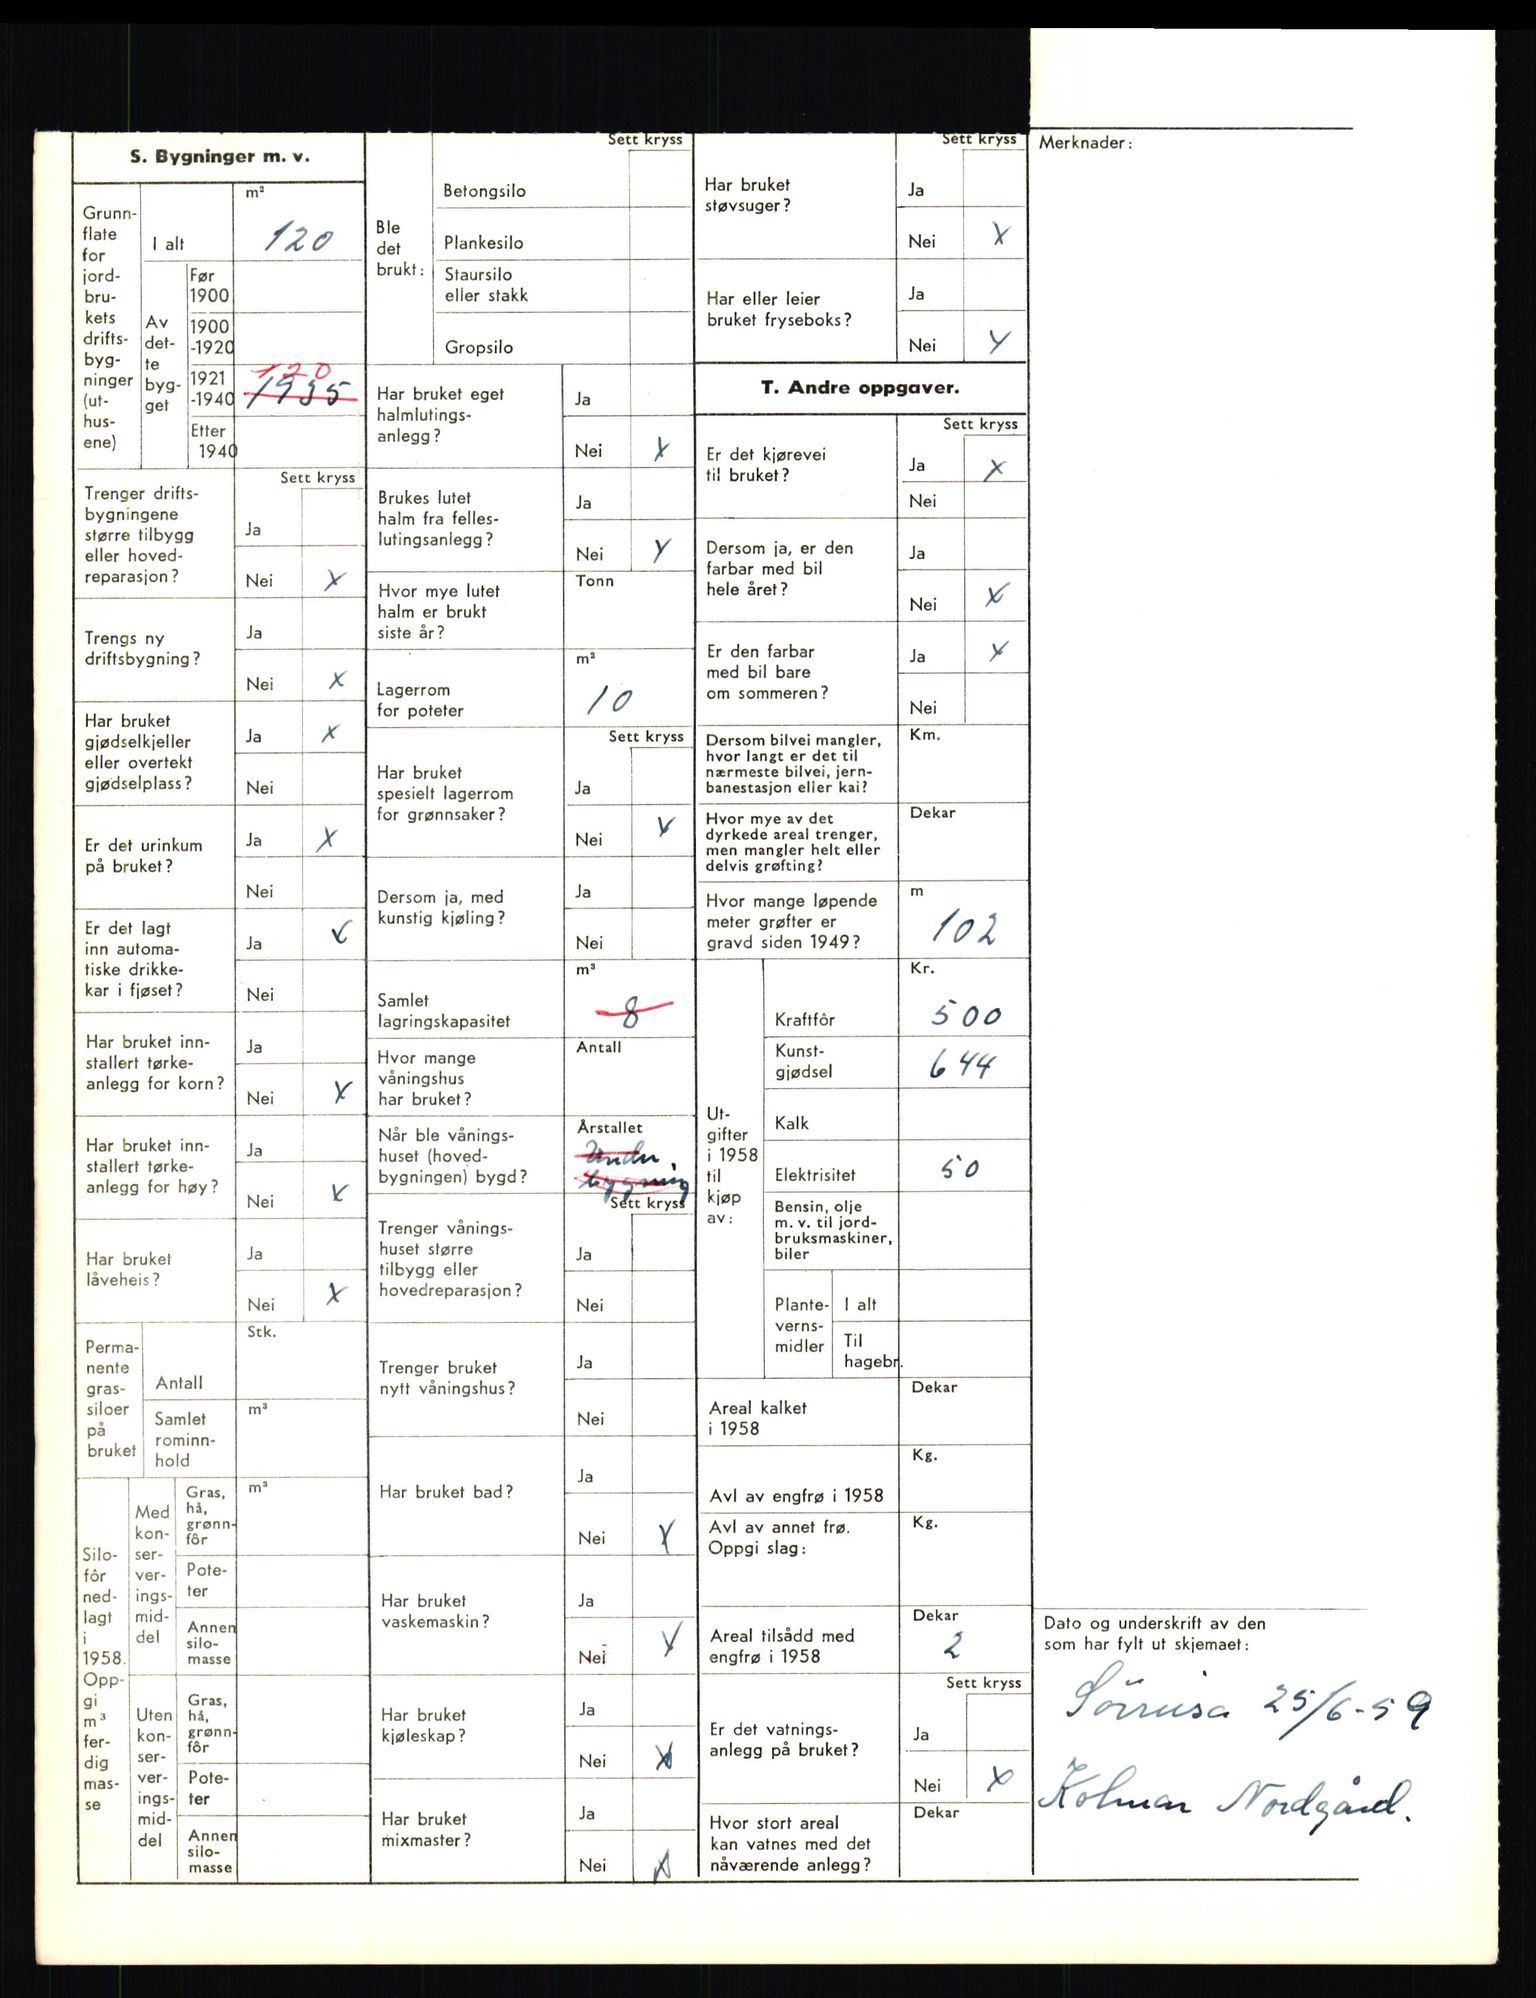 S. Bygninger m. v.
Grunn-
flate
for
jord-
bru-
kets
drifts-
byg-
ninger
(ut-
hus-
ene)
I alt
m²
120
Av
det-
te
byg-
get
Før
1900
1900
-1920
1921
-1940
120
1935
Etter
1940
Sett kryss
Trenger drifts-
bygningene
større tilbygg
eller hoved-
reparasjon?
Ja
Nei X
Trengs ny
driftsbygning?
Ja
Nei X
Har bruket
gjødselkjeller
eller overtekt
gjødselplass?
Ja X
Nei
Er det urinkum
på bruket?
Ja X
Nei
Er det lagt
inn automa-
tiske drikke-
kar i fjøset?
Ja X
Nei
Har bruket inn-
stallert tørke-
anlegg for korn?
Ja
Nei X
Har bruket inn-
stallert tørke-
anlegg for høy?
Ja
Nei X
Har bruket
låveheis?
Ja
Nei X
Perma-
nente
gras-
siloer
på
bruket
Antall
Stk.
Samlet
rominn-
hold
m³
Silo-
fôr
ned-
lagt
i
1958.
Opp-
gi
m³
fer-
dig
mas-
se
Med
kon-
ser-
ver-
ings-
mid-
del
Gras,
hå,
grønn-
fôr
m³
Pote-
ter
Annen
silo-
masse
Uten
kon-
ser-
ver-
ings-
mid-
del
Gras,
hå,
grønn-
fôr
Pote-
ter
Annen
silo-
masse
Sett kryss
Ble
det
brukt:
Betongsilo
Plankesilo
Staursilo
eller stakk
Gropsilo
Har bruket eget
halmlutings-
anlegg?
Ja
Nei X
Brukes lutet
halm fra felles-
lutingsanlegg?
Ja
Nei X
Hvor mye lutet
halm er brukt
siste år?
Tonn
Lagerrom
for poteter
m²
10
Sett kryss
Har bruket
spesielt lagerrom
for grønnsaker?
Ja
Nei X
Dersom ja, med
kunstig kjøling?
Ja
Nei
Samlet
lagringskapasitet
m³
8
Hvor mange
våningshus
har bruket?
Antall
Når ble vånings-
huset (hoved-
bygningen) bygd?
Årstallet
Under
bygning
Sett kryss
Trenger vånings-
huset større
tilbygg eller
hovedreparasjon?
Ja
Nei
Trenger bruket
nytt våningshus?
Ja
Nei
Har bruket bad?
Ja
Nei X
Har bruket
vaskemaskin?
Ja
Nei X
Har bruket
kjøleskap?
Ja
Nei X
Har bruket
mixmaster?
Ja
Nei X
Sett kryss
Har bruket
støvsuger?
Ja
Nei X
Har eller leier
bruket fryseboks?
Ja
Nei X
T. Andre oppgaver.
Sett kryss
Er det kjørevei
til bruket?
Ja X
Nei
Dersom ja, er den
farbar med bil
hele året?
Ja
Nei X
Er den farbar
med bil bare
om sommeren?
Ja X
Nei
Dersom bilvei mangler,
hvor langt er det til
nærmeste bilvei, jern-
banestasjon eller kai?
Km.
Hvor mye av det
dyrkede areal trenger,
men mangler helt eller
delvis grøfting?
Dekar
Hvor mange løpende
meter grøfter er
gravd siden 1949?
m
102
Ut-
gifter
i 1958
til
kjøp
av:
Kr.
Kraftfôr 500
Kunst-
gjødsel 644
Kalk
Elektrisitet 50
Bensin, olje
m. v. til jord-
bruksmaskiner,
biler
Plante-
verns-
midler
I alt
Til
hagebr.
Areal kalket
i 1958
Dekar
Avl av engfrø i 1958
Kg.
Avl av annet frø.
Oppgi slag:
Kg.
Areal tilsådd med
engfrø i 1958
Dekar
2
Sett kryss
Er det vatnings-
anlegg på bruket?
Ja
Nei X
Hvor stort areal
kan vatnes med det
nåværende anlegg?
Dekar
Merknader:
Dato og underskrift av den
som har fylt ut skjemaet:
25/6-59
Kolmar Nordgård.